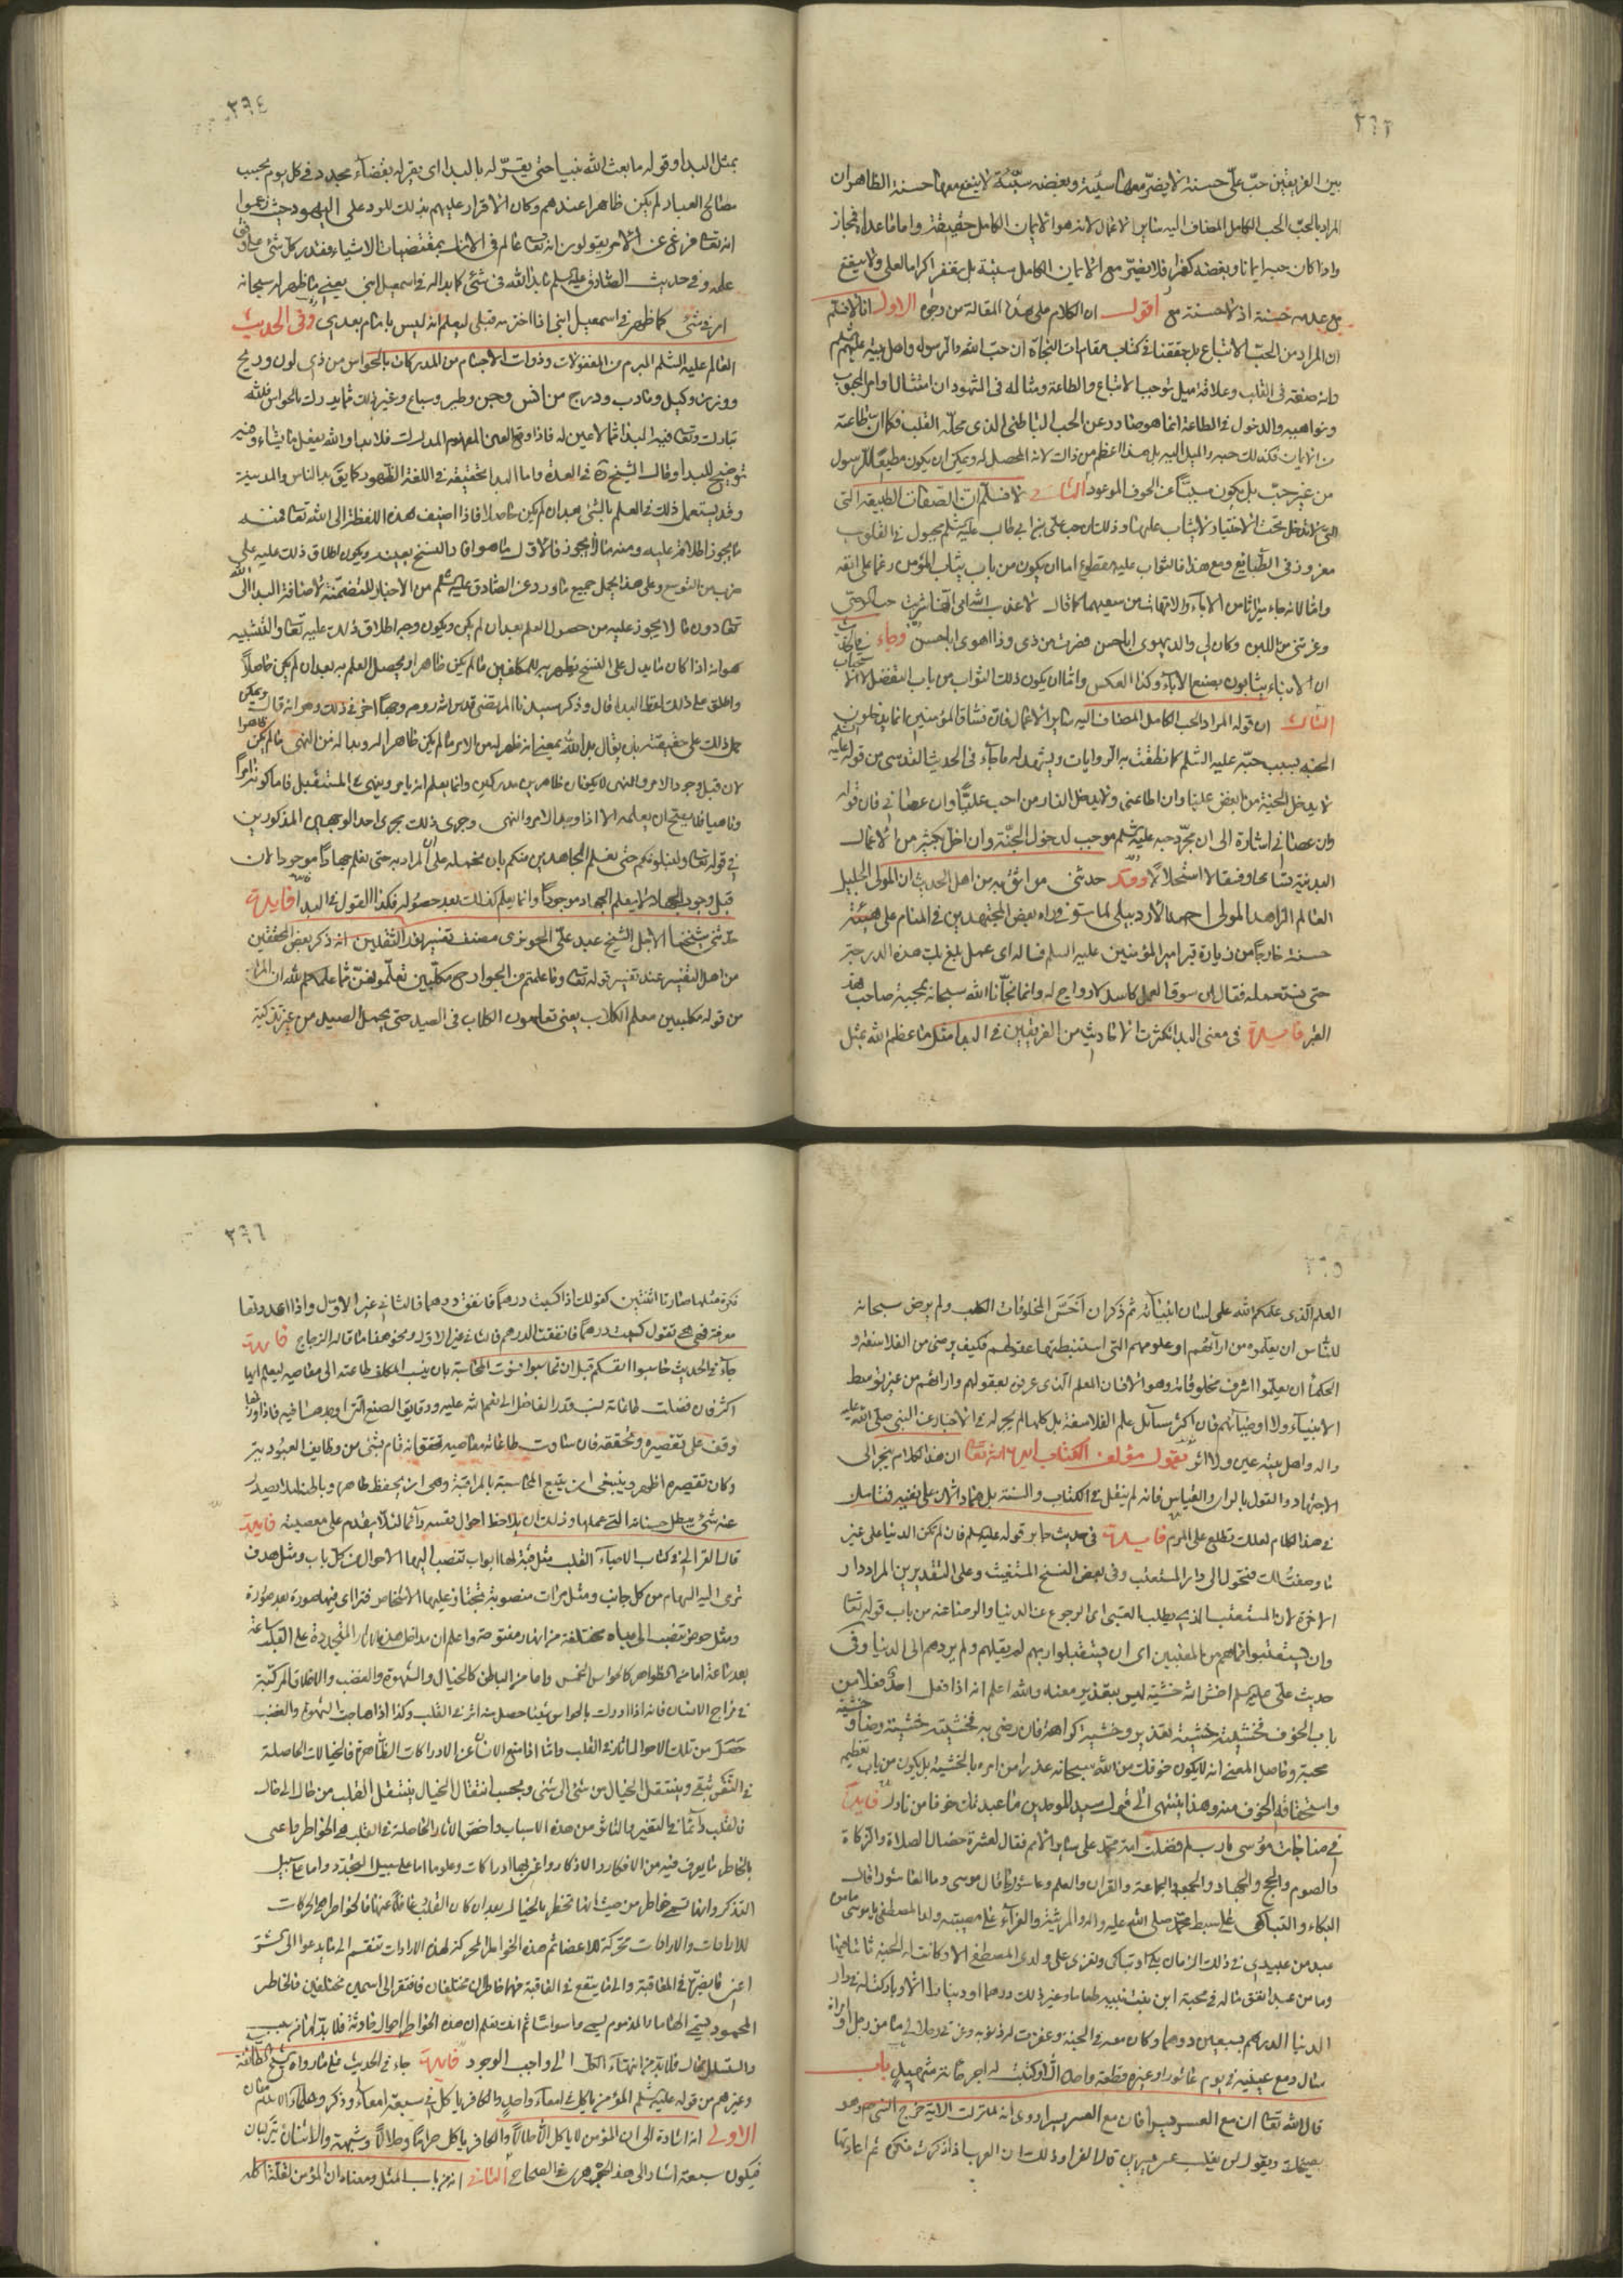 ٣٦٣
بين الفريقين حبّ علي حسنة لا يضرّ معها سيئة وبغضه سيّئة لا ينفع معها حسنة الظاهر ان
المراد بالحبّ الحب الكامل المضاف اليه ساير الاعمال لانه هو الايمان الكامل حقيقة واما ما عداه فمجاز
واذا كان حبه ايمانا وبغضه كفرا فلا يضرّ مع الايمان الكامل سيئة بل تغفر اكراما لعلي ولا ينفع
مع عدمه حسنة اذ لا حسنة مع اقول ان الكلام على هذا المقالة من وجوه الاول انا لا نسلم
ان المراد من الحبّ الاتباع بل حققنا في كتاب مقامات النجاة ان حبّ الله والرسول واهل بيته عليهم السلم
وانه صفة في القلب وعلاقة ميل توجب الاتباع والطاعة ومثاله في الشهود ان امتثال اوامر المحبوب
ونواهيه والدخول في الطاعة انما هو صادر عن الحب الباطني الذي محلّه القلب فكما ان طاعته
من الايمان فكذلك حبه والميل اليه بل هذا اعظم من ذاك لانه المحصل له ويمكن ان يكون مطيعا للرسول
من غير حبّ بل يكون مسببا عن الخوف الموعود الثاني لا نسلم ان الصفات الطبيعة التي
التي لا تدخل تحت الاختيار لا يثاب عليها وذلك ان حب علي بن ابي طالب عليه السلم مجبول في القلوب
مغروز في الطبايع ومع هذا فالثواب عليه مقطوع اما ان يكون من باب يثاب المؤمن رغما على انفه
واما لانه جاء ميراثا من الاباء والامهات من سعيهما كما قال لا عذب الله امي انها شربت حب الوصي
وغذتني من اللبن وكان لي والد يهوى اباحسن فصرت من ذي وذا اهوى اباحسن وجاء في
ان الابناء يثابون بصنع الاباء وكذا العكس واما ان يكون ذلك الثواب من باب التفضل لا
الثالث ان قوله المراد الحب الكامل المضاف اليه ساير الاعمال فان فساق المؤمنين انما يدخلون
الجنة بسبب حبّه عليه السلم كما نطقت به الروايات ويشهد له ما جاء في الحديث القدسي من قوله
لا يدخل الجنة من ابغض عليا وان اطاعني ولا يدخل النار من احب عليّا وان عصاني فان قوله
وان عصاني اشارة الى ان مجرّد حبه عليه السلم موجب لدخول الجنّة وان اخلّ بكثير من الاعمال
البدنية تساهلا وفسقا لا استحلالا وقد حدثني من اثق به من اهل الحديث ان المولى الجليل
العالم الزاهد المولى احمد الاردبيلي لما توفي راه بعض المجتهدين في المنام على هيئة
حسنة خارجا من زيارة قبر امير المؤمنين عليه السلم فساله اي عمل بلغ بك هذه الدرجة
حتى نستعمله فقال ان سوق العمل كاسد لا رواج له وانما نجّانا الله سبحانه بمحبة صاحب هذا
القبر فايدة في معنى البدا كثرت الاحاديث من الفريقين في البدا مثل ما عظم الله بمثل
٣٦٤
بمثل البدا وقوله ما بعث الله نبيا حتى يقرّ له بالبدا اي يقرّ له بقضاء مجدد في كل يوم بحسب
مصالح العباد لم يكن ظاهرا عندهم وكان الاقرار عليهم بذلك للرد على اليهود حيث زعموا
انه تعالى فرغ عن الامر يقولون انه تعالى عالم في الازل بمقتضيات الاشياء فقدر كل شئ
علمه وفي حديث الصادق عليه السلم ما بدا لله في شئ كما بدا له في اسمعيل ابني يعني ما ظهر له سبحانه
امر في شئ كما ظهر في اسمعيل ابني اذا اخترمه قبلي ليعلم انه ليس بامام بعدي وفي الحديث
العالم عليه السلم المبرم من المفعولات وذوات الاجسام من المدركات بالحواس من ذي لون وريح
ووزن وكيل ومادب ودرج من انس وجن وطير وسباع وغير ذلك مما يدرك بالحواس فلله
تبارك وتعالى فيه البدا مما لا عين له فاذا وقع العين المفهوم المدرك فلا بدا والله يفعل ما يشاء
توضيح للبدا وقال الشيخ في العدة واما البدا فحقيقته في اللغة الظهور كما يقال بدا لنا سور المدينة
وقد يستعمل ذلك في العلم بالشئ بعد ان لم يكن حاصلا فاذا اضيف هذه اللفظة الى الله تعالى فمنه
ما يجوز اطلاقه عليه ومنه ما لا يجوز فالاول ما هو افاد النسخ بعينه ويكون اطلاق ذلك عليه على
ضرب من التوسع وعلى هذا يحمل جميع ما ورد عن الصادق عليه السلم من الاخبار المتضمّنة لاضافة البدا الى الله
تعالى دون ما لا يجوز عليه من حصول العلم بعد ان لم يكن ويكون وجه اطلاق ذلك عليه تعالى والتشبيه
هو انه اذا كان ما يدل على النسخ يظهر به للمكلفين ما لم يكن ظاهرا ويحصل العلم به بعد ان لم يكن حاصلا
واطلق على ذلك لفظ البدا قال وذكر سيدنا المرتضى قدس الله روحه وجها اخر في ذلك وهو انه قال ويمكن
حمل ذلك على حقيقته بان يقال بدا لله بمعنى انه ظهر له من الامر ما لم يكن ظاهرا له وبدا له من النهي ما لم يكن ظاهرا
لان قبل وجود الامر والنهي لا يكونان ظاهرين مدركين وانما يعلم انه يامر وينهى في المستقبل فاما كونه امرا
وناهيا فلا يصح ان يعلمه الا اذا وجد الامر والنهي وجرى ذلك مجرى احد الوجهين المذكورين
في قوله تعالى ولنبلونكم حتى نعلم المجاهدين منكم بان نحمله على ان المراد به حتى نعلم جهادكم موجودا لان
قبل وجود الجهاد لا يعلم الجهاد موجودا وانما يعلم كذلك بعد حصوله فكذا القول في البدا فايدة
حدّثني شيخنا الاجل الشيخ عبد علي الحويزي مصنف تفسير نور الثقلين انه ذكر بعض المحققين
من اهل التفسير عند تفسير قوله تعالى وما علمتم من الجوارح مكلّبين تعلّمونهنّ مما علمكم الله ان المراد
من قوله مكلبين معلم الكلاب يعني تعلمون الكلاب في الصيد حتى يحمل الصيد من غير تذكية
٣٦٥
العلم الذي علمكم الله على لسان انبيائه ثم ذكر ان اخسّ المخلوقات الكلب ولم يرض سبحانه
للناس ان يعلّموه من ارائهم او علومهم التي استنبطتها عقولهم فكيف يرضى من الفلاسفة و
الحكما ان يعلّموا اشرف مخلوقاته وهو الانسان العلم الذي عرف بعقولهم وارائهم من غير توسط
الانبياء ولا اوصيائهم فان اكثر مسائل علم الفلاسفة بل كلها لم يجر له في الاخبار عن النبي صلى الله عليه
واله واهل بيته عين ولا اثر يقول مؤلف الكتاب ايده الله تعالى ان هذا الكلام ينجر الى
الاجتهاد والقول بالراي والقياس فانه لم ينقل في الكتاب والسنة
في هذا الكلام لعلك تطلع على المرام فايدة في حديث جابر قوله عليه السلم فان لم تكن الدنيا على غير
ما وصفت لك فتحول الى دار المستعتب وفي بعض النسخ المتغيث وعلى التقديرين المراد دار
الاخرة لان المستعتب الذي يطلب العتبى اي الرجوع عن الدنيا والرضا عنه من باب قوله تعالى
وان يستعتبوا فما هم من المعتبين اي ان يستقيلوا ربهم لم يقلهم ولم يردهم الى الدنيا وفي
حديث علي عليه السلم اخش الله خشية ليس بتعذير معناه والله اعلم انه اذا فعل احد فعلا من
باب الخوف فخشيته خشية تعذير وخشية كراهة فان رضي به فخشيته خشية رضا و
محبة وحاصل المعنى انه لا يكون خوفك من الله سبحانه عذرا من امره بالخشية بل يكون من باب تعظيم
واستحقاقه الخوف منه وهذا ينتهي الى قول سيد الموحدين ما عبدتك خوفا من نارك فايدة
في مناجات موسى يا رب لم فضلت امة محمد على ساير الامم فقال لعشر خصال الصلاة والزكاة
والصوم والحج والجهاد والجمعة والجماعة والقران والعلم وعاشورا قال موسى وما العاشورا قال
البكاء والتباكي على سبط محمد صلى الله عليه واله والمرثية والعزاء على مصيبة ولد المصطفى يا موسى ما من
عبد من عبيدي في ذلك الزمان بكى او تباكى وتعزى على ولد المصطفى الا وكانت له الجنة ثابتا فيها
وما من عبد انفق ماله في محبة ابن بنت نبيه طعاما وغير ذلك درهما او دينارا الا وباركت له في دار
الدنيا الدرهم بسبعين درهما وكان معه في الجنة وغفرت له ذنوبه وعزتي وجلالي ما من رجل او امراة
سال دمع عينيه في يوم عاشورا وغيره قطرة واحدة الا وكتبت له اجر ماية شهيد باب
قال الله تعالى ان مع العسر يسرا فان مع العسر يسرا روي انه لما نزلت الاية خرج النبي وهو
يضحك ويقول لن يغلب عسر يسرين قال الفراء وذلك ان العرب اذا ذكرت نكرة ثم اعادتها
٣٦٦
نكرة مثلها صارتا اثنتين كقولك اذا كسبت درهما فانفق درهما فالثاني غير الاول واذا اعدتها
معرفة فهي هي تقول كسبت درهما فانفقت الدرهم فالثاني عين الاول ونحو هذا ما قاله الزجاج فايدة
جاء في الحديث حاسبوا انفسكم قبل ان تحاسبوا فسرت المحاسبة بان ينسب المكلف طاعته الى معاصيه ليعلم ايها
اكثر فان فضلت طاعاته نسب قدر الفاضل الى نعم الله عليه ودقايق الصنع التي اوجدها فيه
وقف على تقصيره وتحققه فان ساوت طاعاته معاصيه تحقق انه قام بشئ من وظايف العبودية
وكان تقصيره اظهر وينبغي ان يتبع المحاسبة بالمراقبة وهي ان يحفظ ظاهره وباطنه لئلا يصدر
عنه شئ يبطل حسناته التي عملها وذلك ان يلاحظ احوال نفسه دائما لئلا يقدم على معصية فايدة
قال الغزالي في كتاب الاحياء القلب مثل قبة لها ابواب تنصب اليها الاحوال من كل باب ومثل هدف
ترمى اليه السهام من كل جانب ومثل مرات منصوبة تجتاز عليها الاشخاص فتراى فيها صورة بعد صورة
ومثل حوض تنصب اليه مياه مختلفة من انهار مفتوحة واعلم ان مداخل هذه الاثار المتجددة في القلب ساعة
بعد ساعة اما من الظواهر كالحواس الخمس واما من الباطن كالخيال والشهوة والغضب والاخلاق المركبة
في مزاج الانسان فانه اذا ادرك بالحواس شيئا حصل منه اثر في القلب وكذا اذا هاجت الشهوة والغضب
حصل من تلك الاحوال اثار في القلب واما اذا منع الانسان عن الادراكات الظاهرة فالخيالات الحاصلة
في النفس تبقى وينتقل الخيال من شئ الى شئ وبحسب انتقال الخيال ينتقل القلب من حال الى حال
فالقلب دائما في التغير والتاثر من هذه الاسباب واخص الاثار الحاصلة في القلب هي الخواطر واعني
بالخاطر ما يعرض فيه من الافكار والاذكار واعني بها ادراكات وعلوما اما على سبيل التجدد واما على سبيل
التذكر وانما تسمى خواطر من حيث انها تخطر بالخيال بعد ان كان القلب غافلا عنها فالخواطر هي المحركات
للارادات والارادات محركة للاعضا ثم هذه الخواطر المحركة لهذه الارادات تنقسم الى ما يدعو الى الشر
اعني ما يضر في العاقبة والى ما ينفع في العاقبة فهما خاطران مختلفان فافتقر الى اسمين مختلفين فالخاطر
المحمود يسمى الهاما والمذموم يسمى وسواسا ثم انك تعلم ان هذه الخواطر احوال حادثة فلا بد لها من سبب
والتسلسل محال فلا بد من انتهاء الكل الى واجب الوجود فايدة جاء في الحديث مما رواه شيخ الطائفة
وغيرهم من قوله عليه السلم المؤمن ياكل في امعاء واحد والكافر ياكل في سبعة امعاء وذكر
الاولى انه اشارة الى ان المؤمن لا ياكل الا حلالا والكافر ياكل حراما وحلالا وشبهة
فيكون سبعة اشار الى هذا الجوهري في الصحاح الثاني انه من باب المثل ومعناه ان المؤمن لقلة اكله